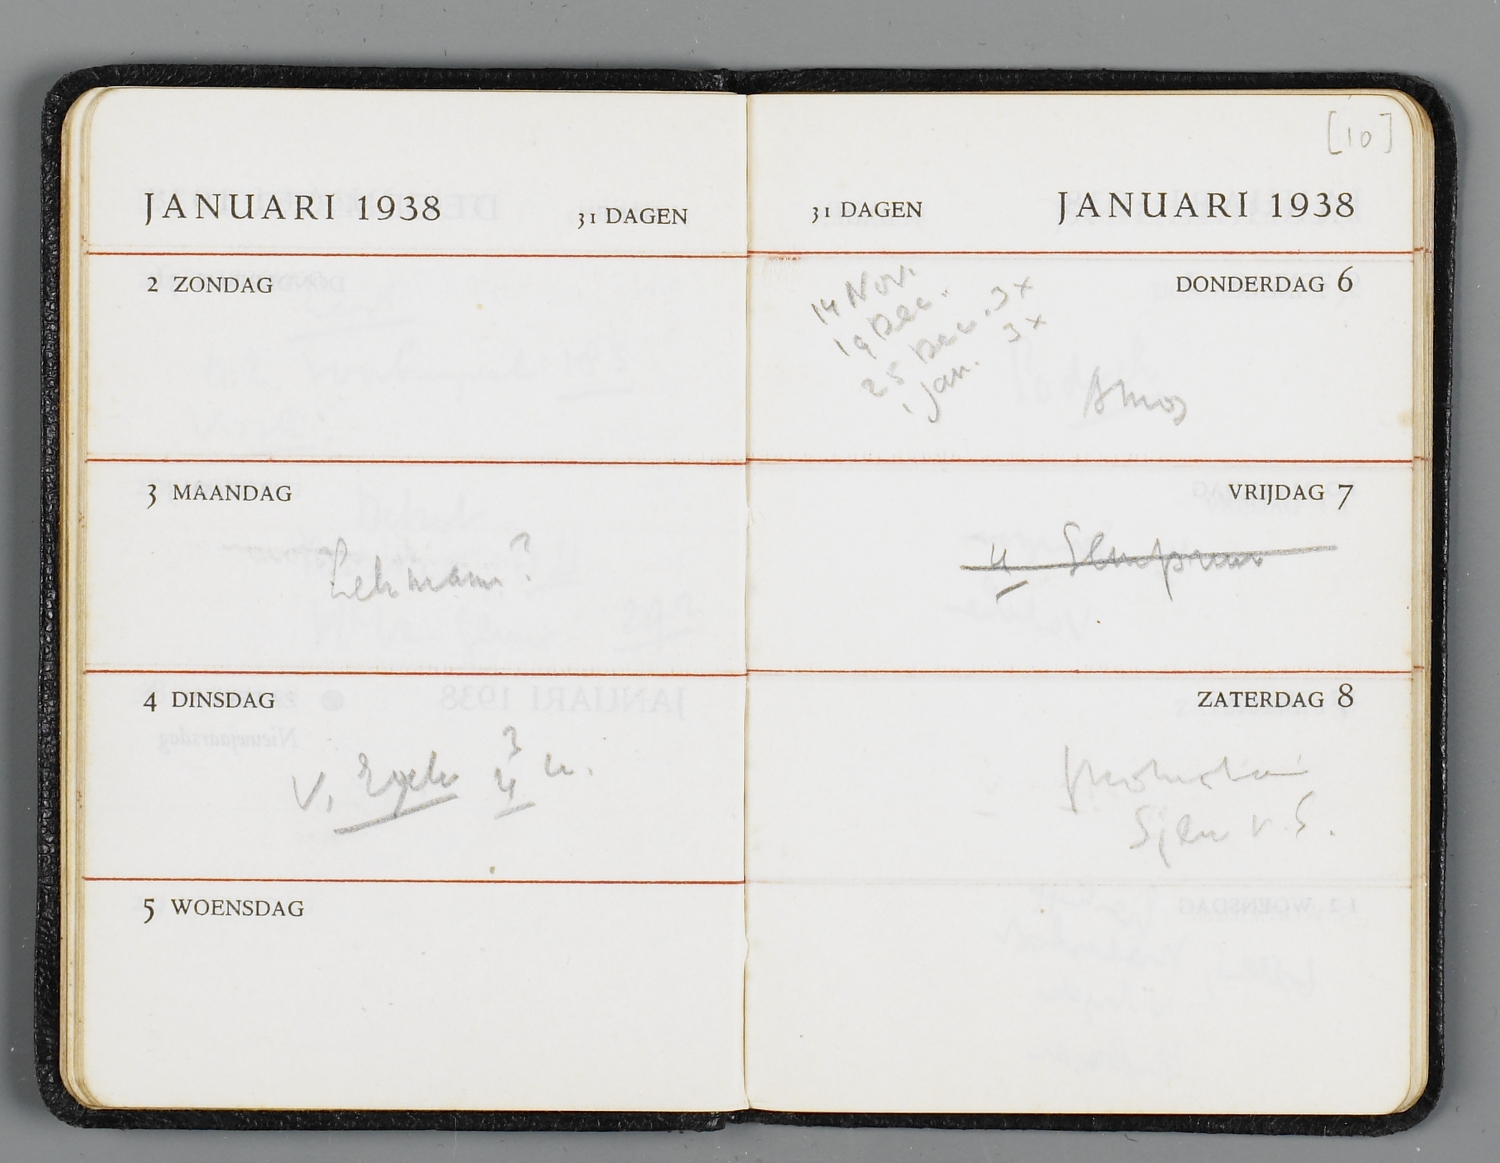 JANUARI 1938 31 DAGEN
2 ZONDAG
3 MAANDAG
Lehmann?
4 DINSDAG
v. Eyck 3
4 u.
5 WOENSDAG
[10]
31 DAGEN JANUARI 1938
DONDERDAG 6
14 Nov.
19 Dec.
25 Dec. 3x
1 Jan. 3x
Amos
VRIJDAG 7
4
ZATERDAG 8
v. S.